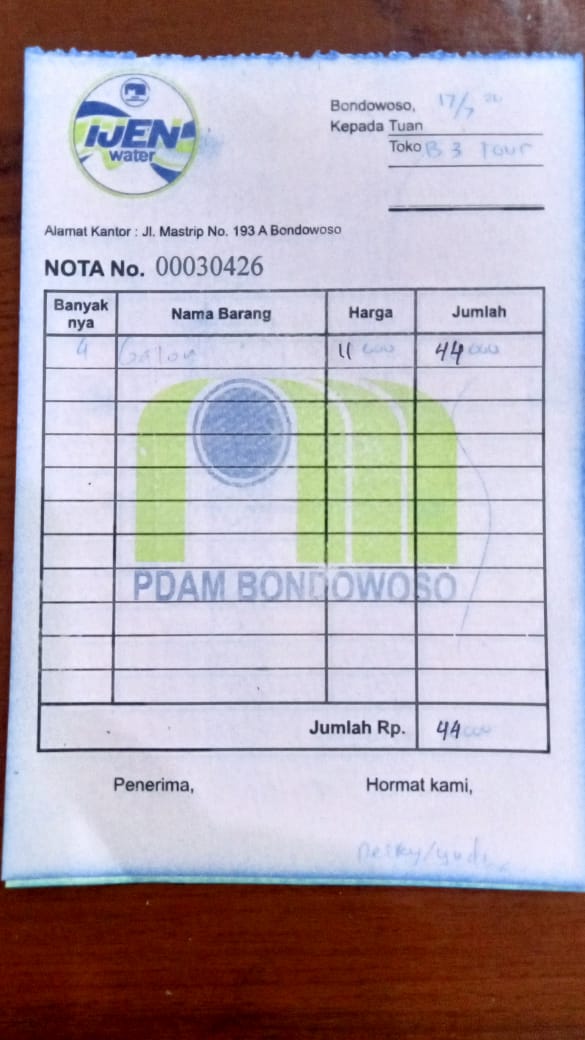 IJEN
water
Bondowoso, 17/7
Kepada Tuan
Toko B 3 Tour
Alamat Kantor : Jl. Mastrip No. 193 A Bondowoso
NOTA No. 00030426
Banyak nya Nama Barang Harga Jumlah
4 Galon 11 000 44 000
PDAM BONDOWOSO
Jumlah Rp. 44 000
Penerima, Hormat kami,